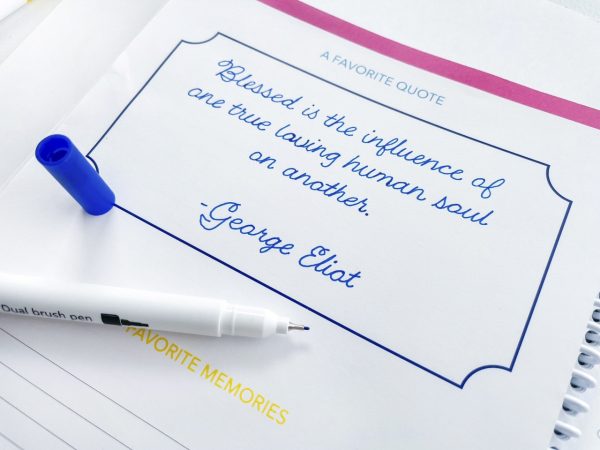 A FAVORITE QUOTE
Blessed is the influence of
one true loving human soul
on another.
-George Eliot
Dual brush pen
FAVORITE MEMORIES